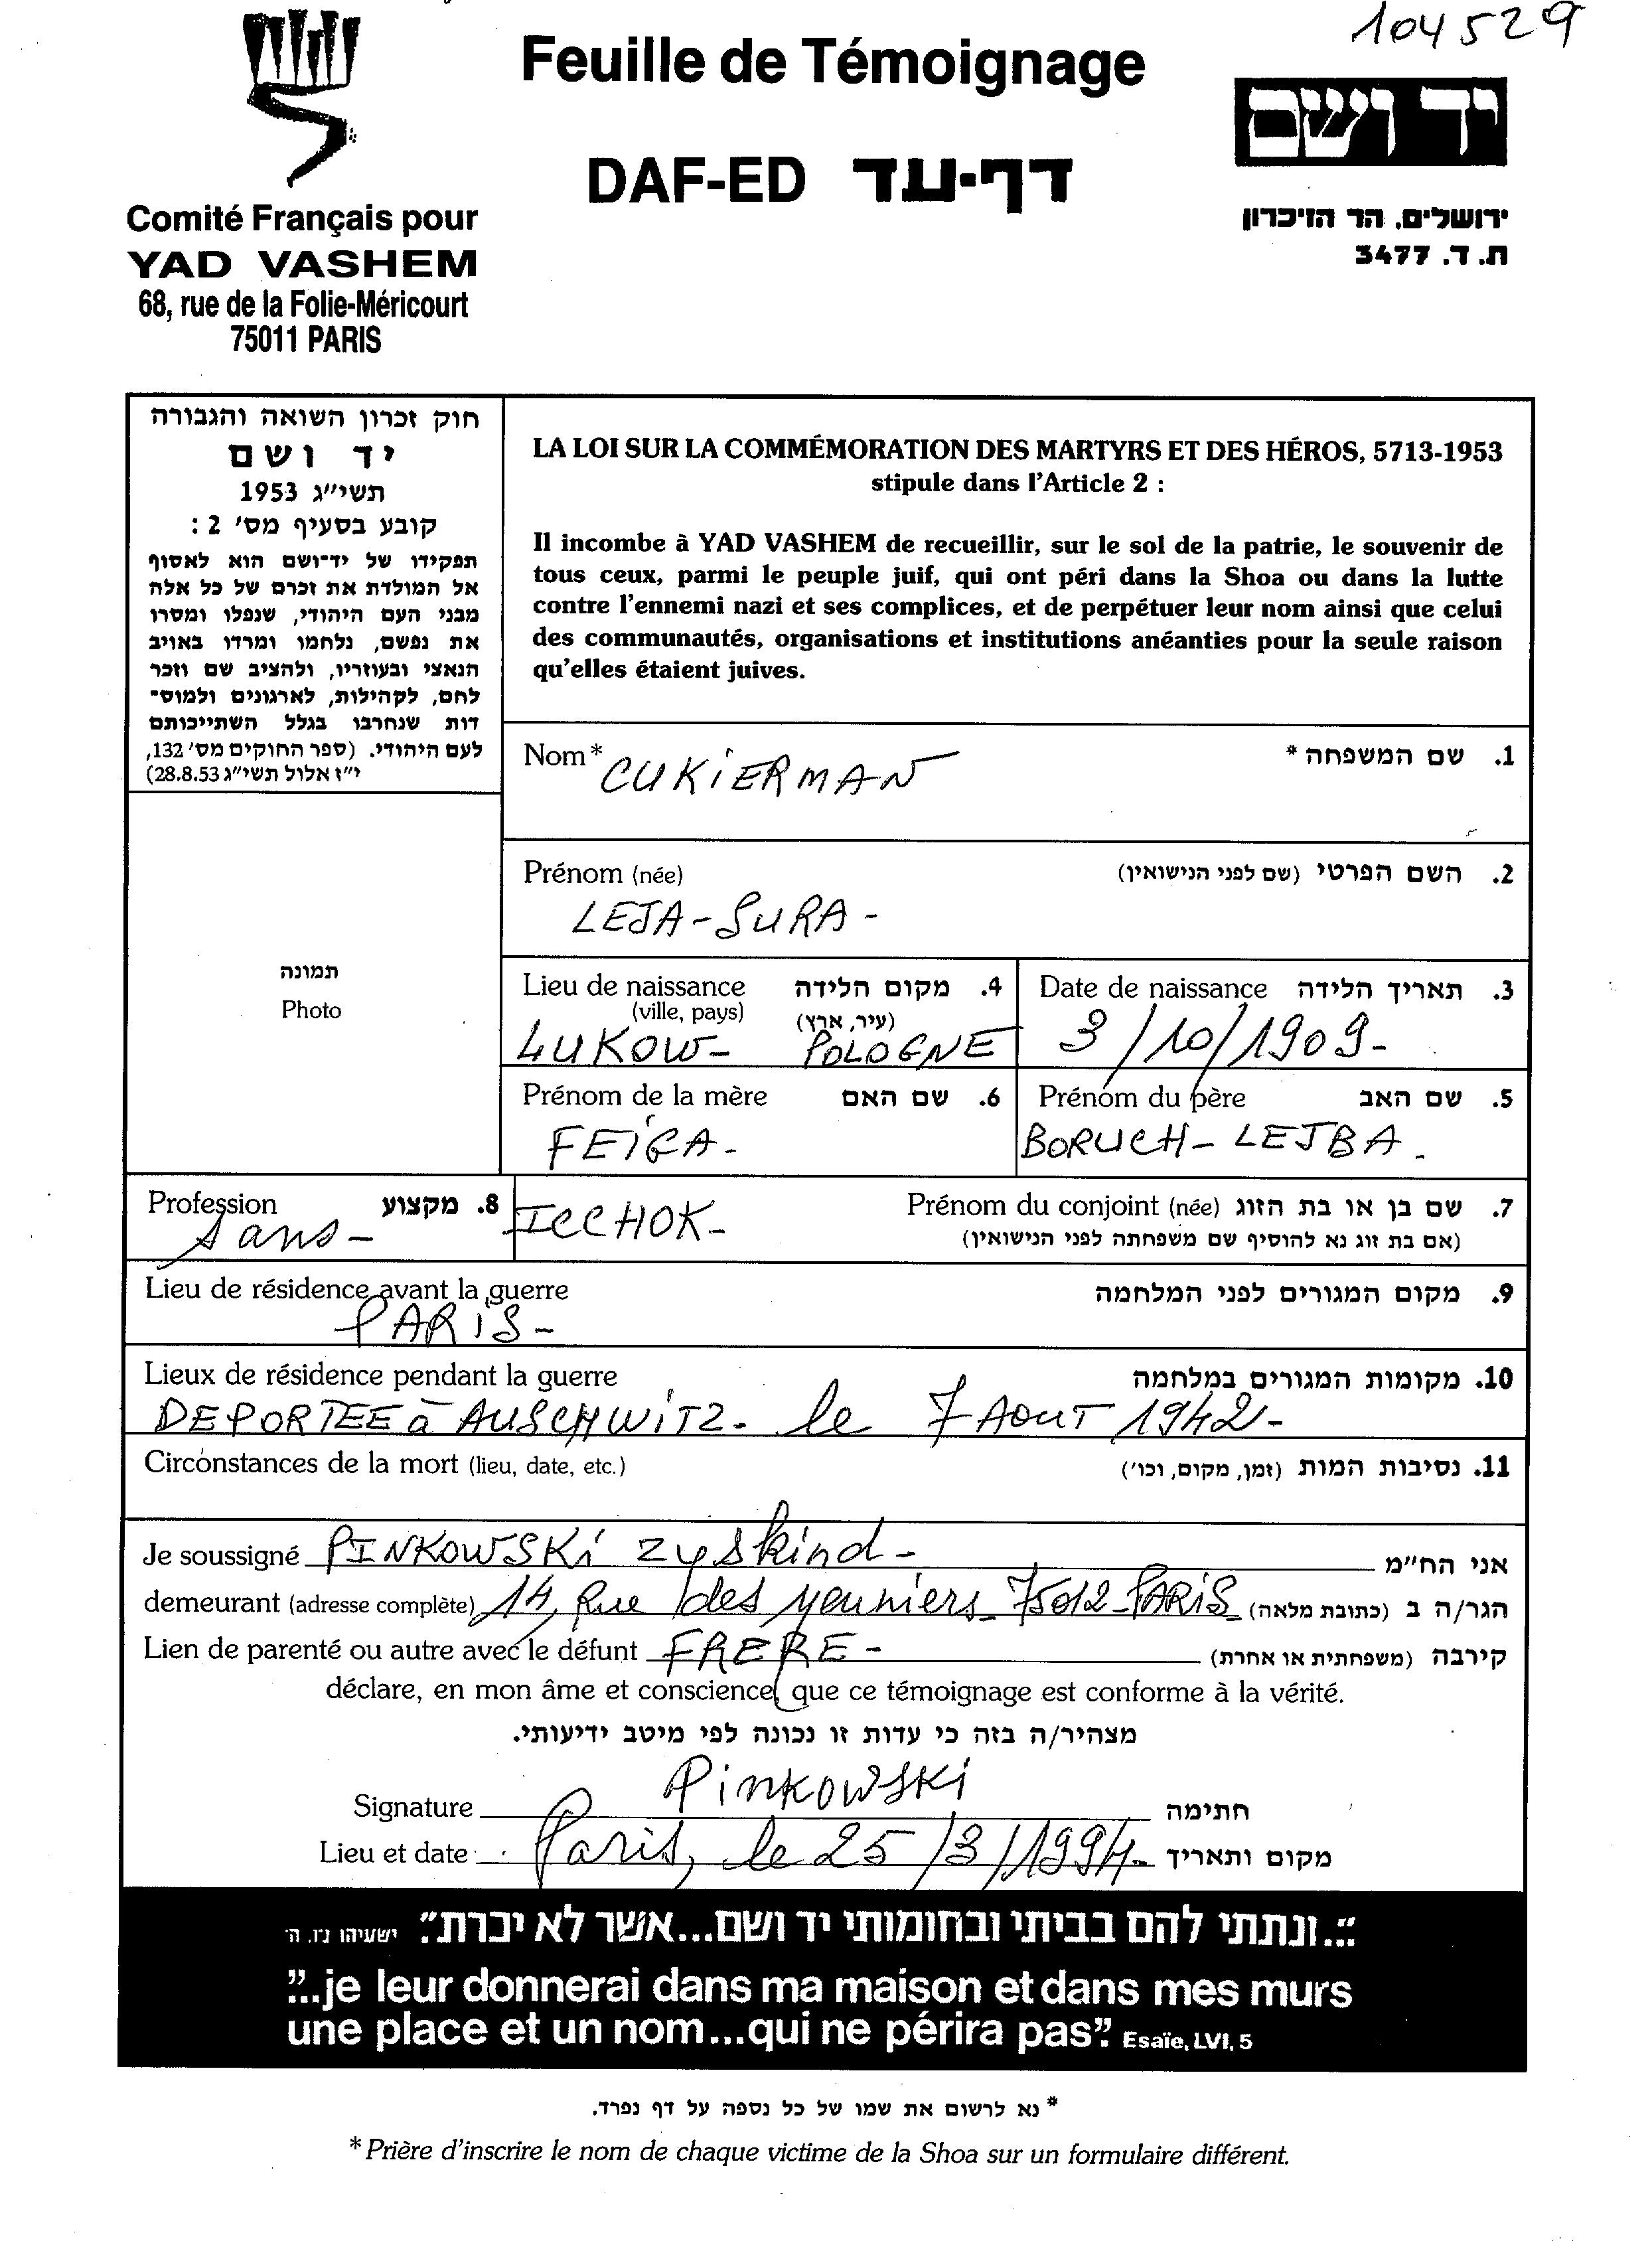 104529
Feuille de Témoignage
DAF-ED דף-עד
יד ושם
ירושלים. הר הזיכרון
ת. ד. 3477
Comité Français pour
YAD VASHEM
68, rue de la Folie-Méricourt
75011 PARIS
חוק זכרון השואה והגבורה
יד ושם
תשי״ג 1953
קובע בסעיף מס׳ 2 :
תפקידו של יד־ושם הוא לאסוף
אל המולדת את זכרם של כל אלה
מבני העם היהודי, שנפלו ומסרו
את נפשם, נלחמו ומרדו באויב
הנאצי ובעוזריו, ולהציב שם וזכר
להם, לקהילות, לארגונים ולמוס־
דות שנחרבו בגלל השתייכותם
לעם היהודי. (ספר החוקים מס׳ 132,
י״ז אלול תשי״ג 28.8.53)
LA LOI SUR LA COMMÉMORATION DES MARTYRS ET DES HÉROS, 5713-1953
stipule dans l'Article 2 :
Il incombe à YAD VASHEM de recueillir, sur le sol de la patrie, le souvenir de
tous ceux, parmi le peuple juif, qui ont péri dans la Shoa ou dans la lutte
contre l'ennemi nazi et ses complices, et de perpétuer leur nom ainsi que celui
des communautés, organisations et institutions anéanties pour la seule raison
qu'elles étaient juives.
Nom* 1. שם המשפחה *
CUKiERMAN
Prénom (née) 2. השם הפרטי (שם לפני הנישואין)
LEJA-SURA-
תמונה
Photo
Lieu de naissance 4. מקום הלידה
(ville, pays) (עיר, ארץ)
LUKOW- POLOGNE
Date de naissance 3. תאריך הלידה
3/10/1909-
Prénom de la mère 6. שם האם
FEIGA-
Prénom du père 5. שם האב
BORUCH- LEJBA.
Profession 8. מקצוע
Sans-
Prénom du conjoint (née) 7. שם בן או בת הזוג
(אם בת זוג נא להוסיף שם משפחתה לפני הנישואין)
ICCHOK-
Lieu de résidence avant la guerre 9. מקום המגורים לפני המלחמה
PARIS-
Lieux de résidence pendant la guerre 10. מקומות המגורים במלחמה
DEPORTEE à AUSCHWiTZ- le 7 AOUT 1942-
Circonstances de la mort (lieu, date, etc.) 11. נסיבות המות (זמן, מקום, וכו׳)
Je soussigné PINKOWSKi Zyskind- אני הח״מ
demeurant (adresse complète) 14, Rue des Meuniers- 75012-PARiS הגר/ה ב (כתובת מלאה)
Lien de parenté ou autre avec le défunt FRERE- קירבה (משפחתית או אחרת)
déclare, en mon âme et conscience, que ce témoignage est conforme à la vérité.
מצהיר/ה בזה כי עדות זו נכונה לפי מיטב ידיעותי.
Signature Pinkowski חתימה
Lieu et date Paris, le 25/3/1994- מקום ותאריך
״...ונתתי להם בביתי ובחומותי יד ושם...אשר לא יכרת״. ישעיהו נ״ו. ה׳
"...je leur donnerai dans ma maison et dans mes murs
une place et un nom...qui ne périra pas". Esaïe, LVI, 5
* נא לרשום את שמו של כל נספה על דף נפרד.
* Prière d'inscrire le nom de chaque victime de la Shoa sur un formulaire différent.